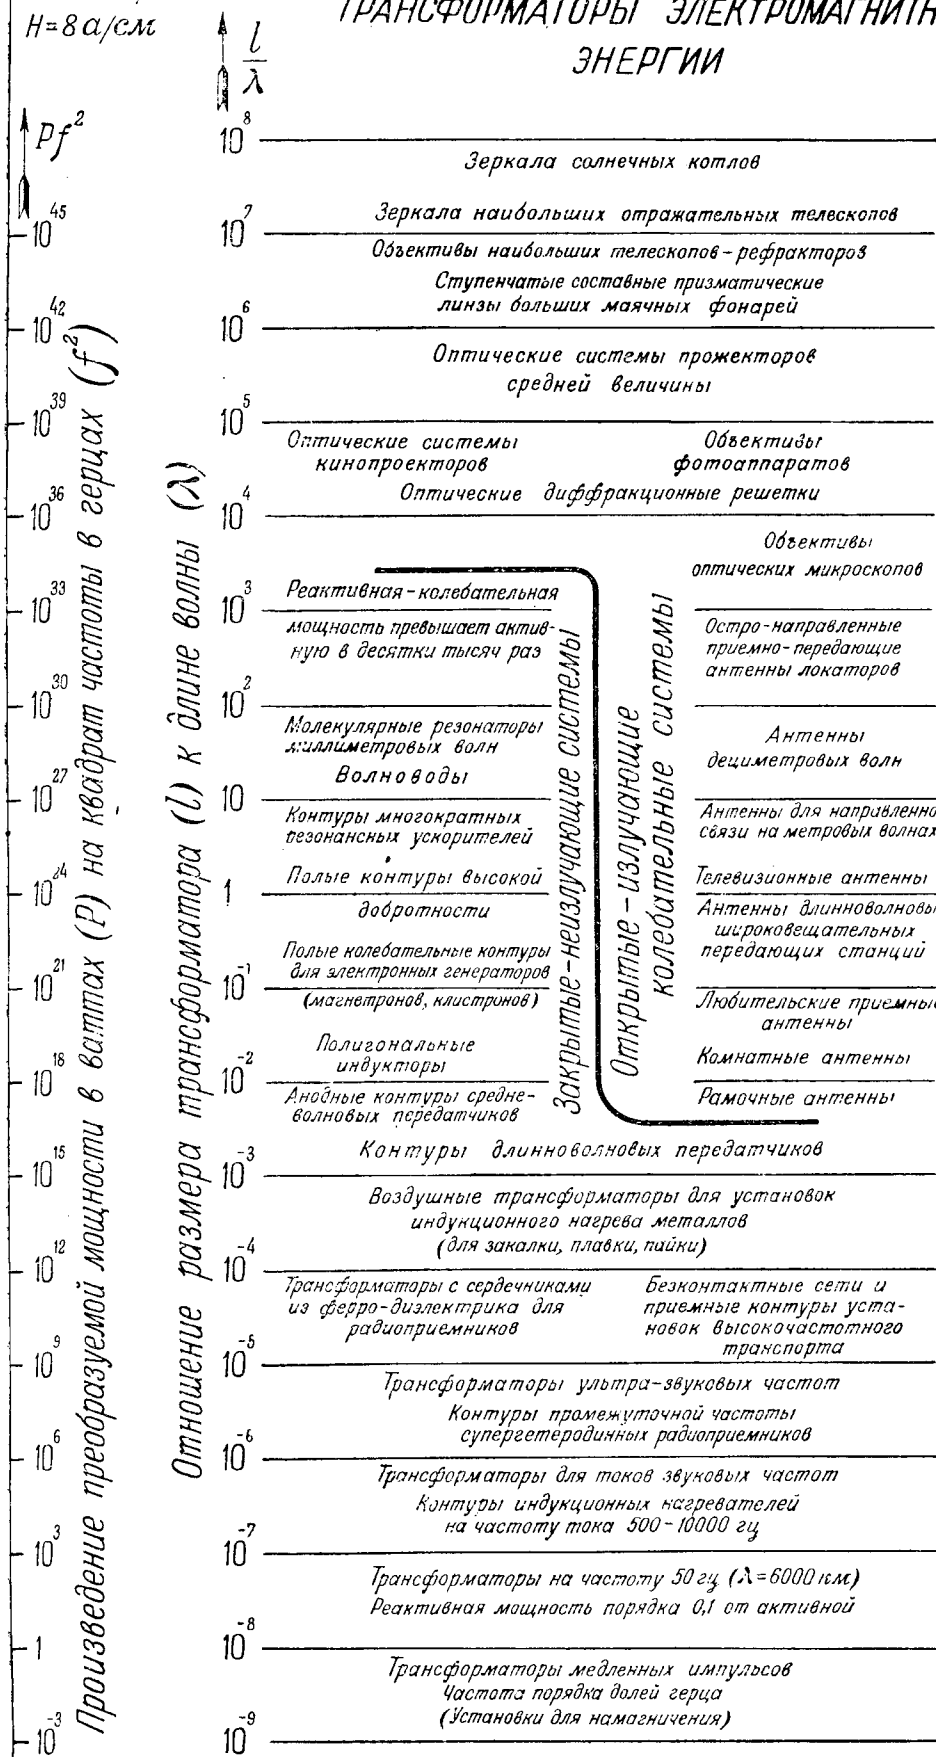 ТРАНСФОРМАТОРЫ ЭЛЕКТРОМАГНИТН
ЭНЕРГИИ
H=8 а/см
Pf²
10⁴⁵
10⁴²
10³⁹
10³⁶
10³³
10³⁰
10²⁷
10²⁴
10²¹
10¹⁸
10¹⁵
10¹²
10⁹
10⁶
10³
1
10⁻³
Произведение преобразуемой мощности в ваттах (P) на квадрат частоты в герцах (f²)
l/λ
10⁸
10⁷
10⁶
10⁵
10⁴
10³
10²
10
1
10⁻¹
10⁻²
10⁻³
10⁻⁴
10⁻⁵
10⁻⁶
10⁻⁷
10⁻⁸
10⁻⁹
Отношение размера трансформатора (l) к длине волны (λ)
Зеркала солнечных котлов
Зеркала наибольших отражательных телескопов
Объективы наибольших телескопов-рефракторов
Ступенчатые составные призматические
линзы больших маячных фонарей
Оптические системы прожекторов
средней величины
Оптические системы
кинопроекторов
Объективы
фотоаппаратов
Оптические диффракционные решетки
Реактивная-колебательная
мощность превышает актив-
ную в десятки тысяч раз
Молекулярные резонаторы
миллиметровых волн
Волноводы
Контуры многократных
резонансных ускорителей
Полые контуры высокой
добротности
Полые колебательные контуры
для электронных генераторов
(магнетронов, клистронов)
Полигональные
индукторы
Анодные контуры средне-
волновых передатчиков
Закрытые-неизлучающие системы
Открытые-излучающие
колебательные системы
Объективы
оптических микроскопов
Остро-направленные
приемно-передающие
антенны локаторов
Антенны
дециметровых волн
Антенны для направленно
связи на метровых волнах
Телевизионные антенны
Антенны длинноволновы
широковещательных
передающих станций
Любительские приемные
антенны
Комнатные антенны
Рамочные антенны
Контуры длинноволновых передатчиков
Воздушные трансформаторы для установок
индукционного нагрева металлов
(для закалки, плавки, пайки)
Трансформаторы с сердечниками
из ферро-диэлектрика для
радиоприемников
Безконтактные сети и
приемные контуры уста-
новок высокочастотного
транспорта
Трансформаторы ультра-звуковых частот
Контуры промежуточной частоты
супергетеродинных радиоприемников
Трансформаторы для токов звуковых частот
Контуры индукционных нагревателей
на частоту тока 500-10000 гц
Трансформаторы на частоту 50 гц (λ=6000 км)
Реактивная мощность порядка 0,1 от активной
Трансформаторы медленных импульсов
Частота порядка долей герца
(Установки для намагничения)